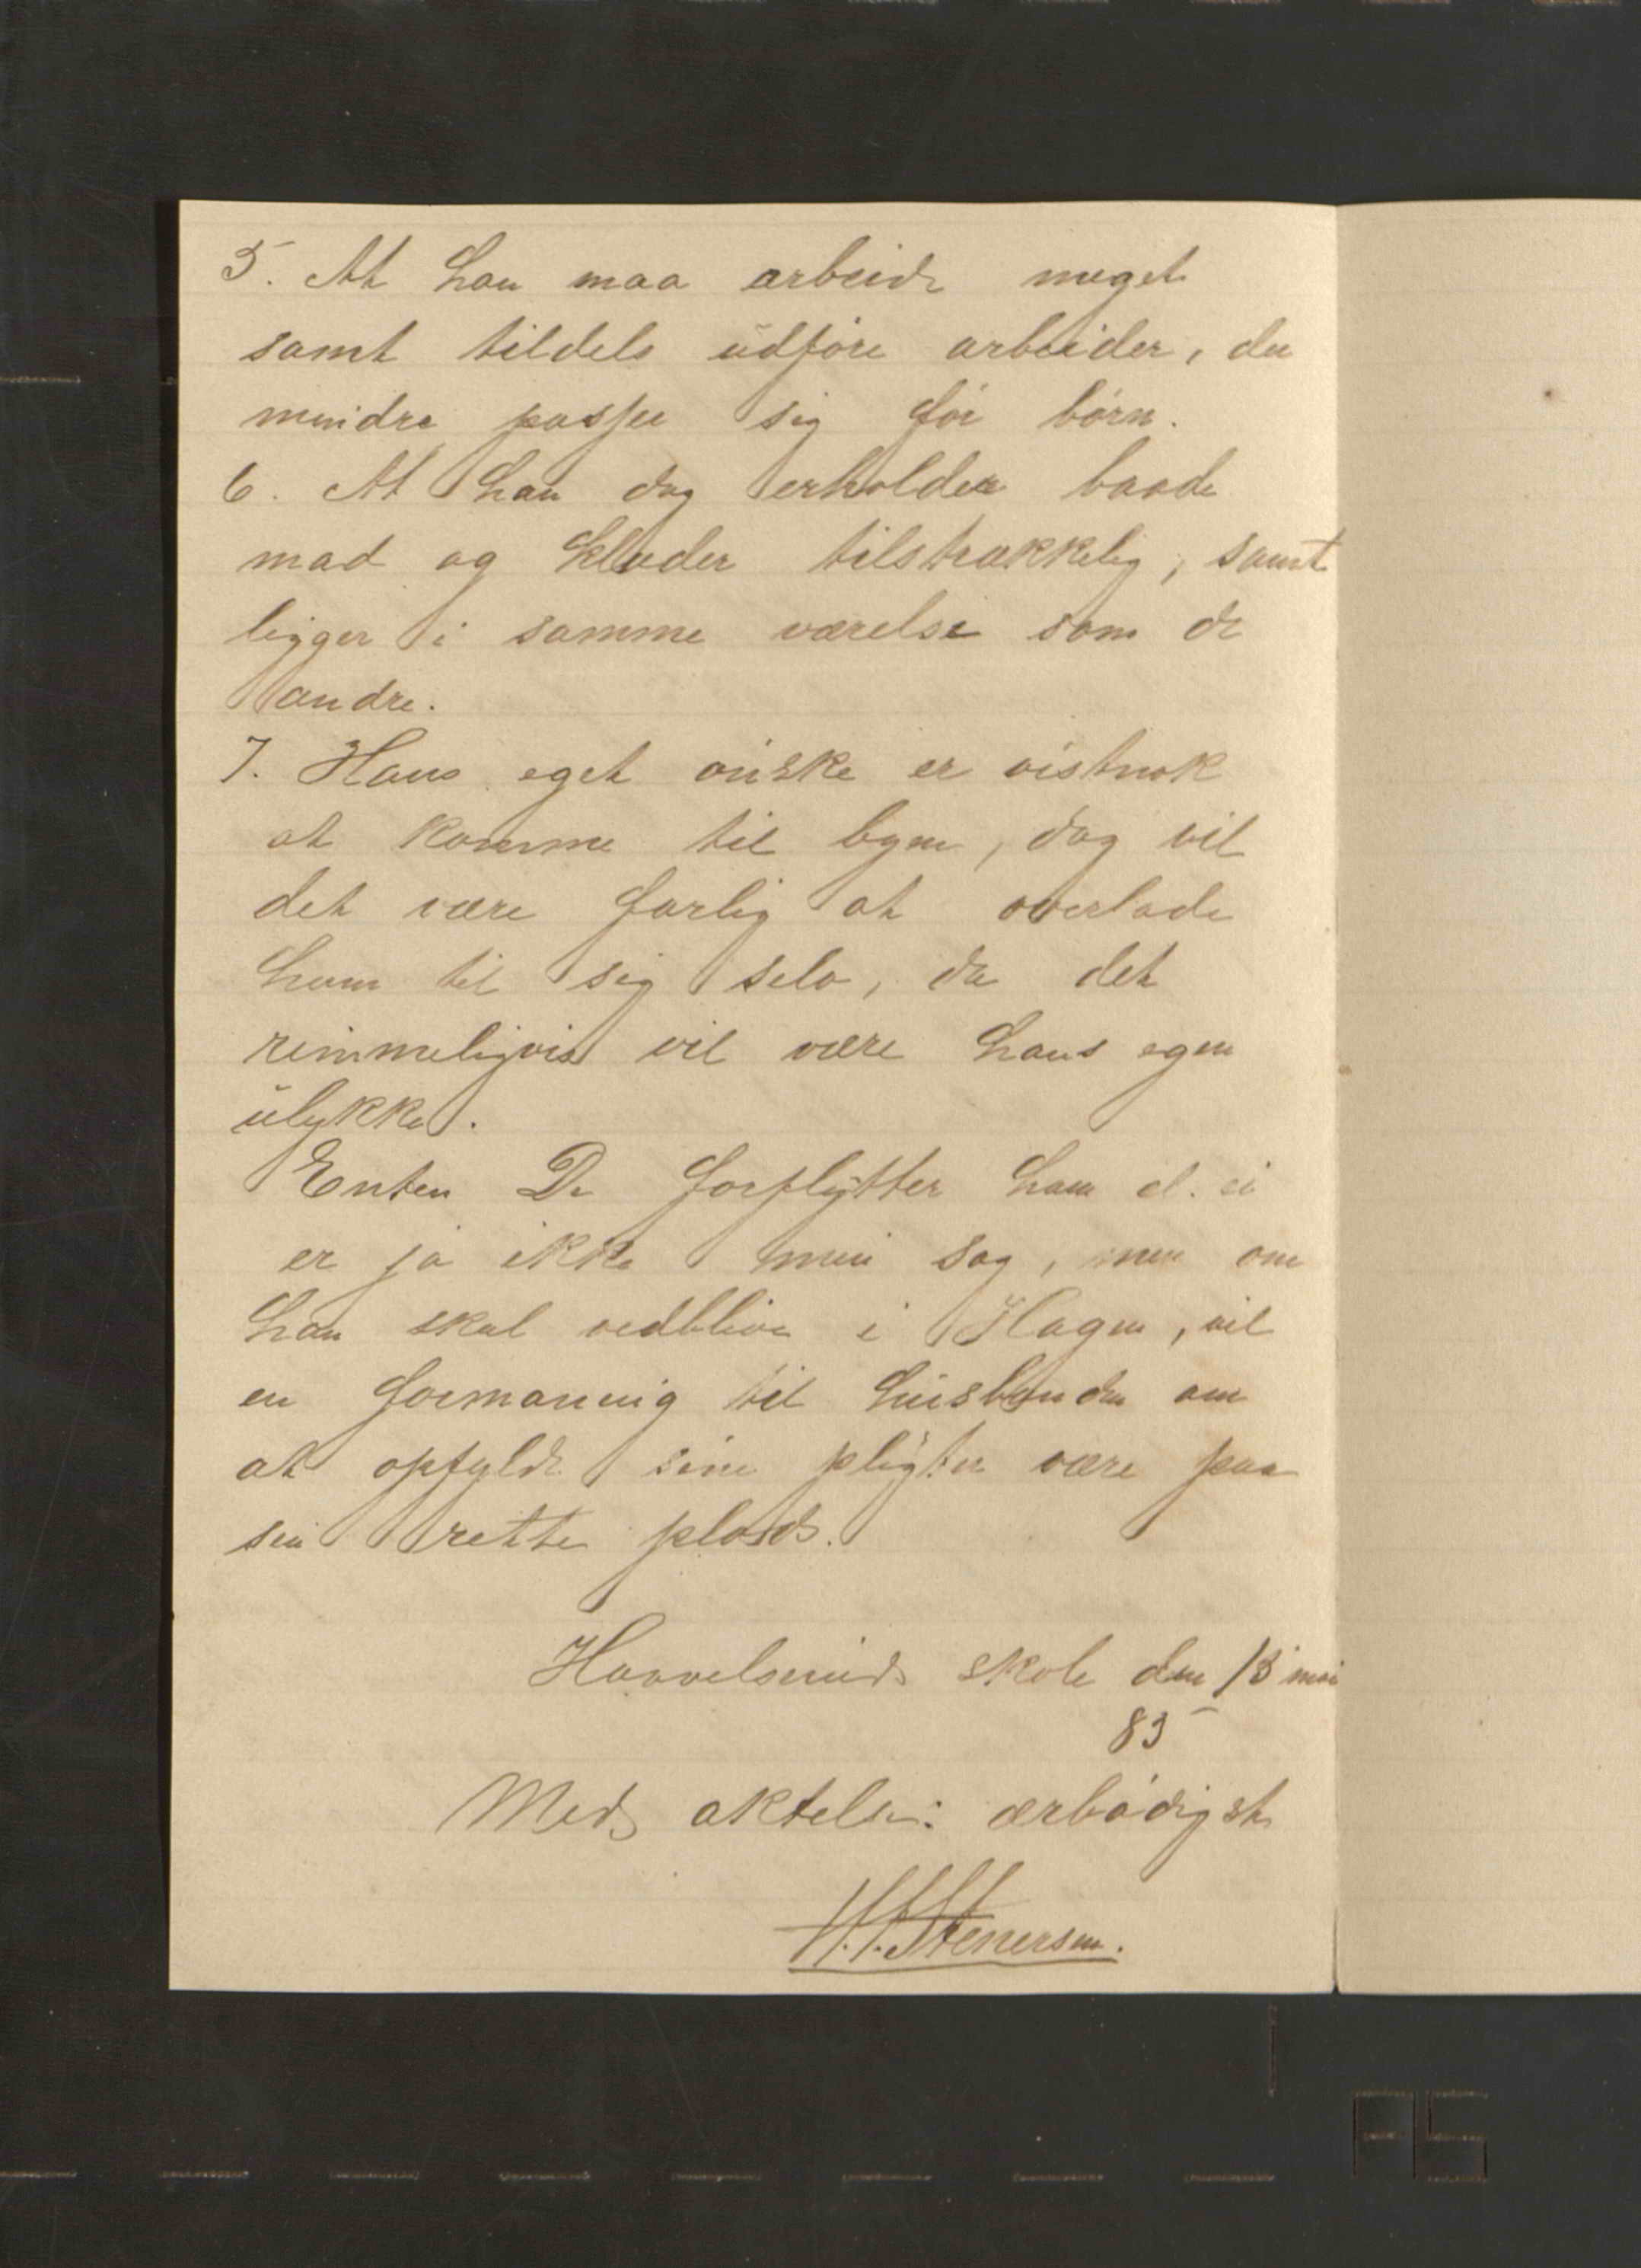 5. At han maa arbeide meget
samt tildels udføre arbeider, der
mindre passer sig for børn.
6. At han dog erholder baade
mad og klæder tilstrækkelig, samt
ligger i samme værelse som de
andre.
7. Hans eget ønske er vistnok
at komme til byen, dog vil
det være farlig at overlade
ham til sig selv, da det
rimmeligvis vil være hans egen
ulykke.
Enten De forflytter ham el. ei
er jo ikke min sag, men om
han skal vedblive i Hagen, vil
en formaning til husbonden om
at opfylde sine pligter være paa
sin rette plads.
skole den 13 mai
85
Med agtelse: ærbødigst
H. H. Stenersen.